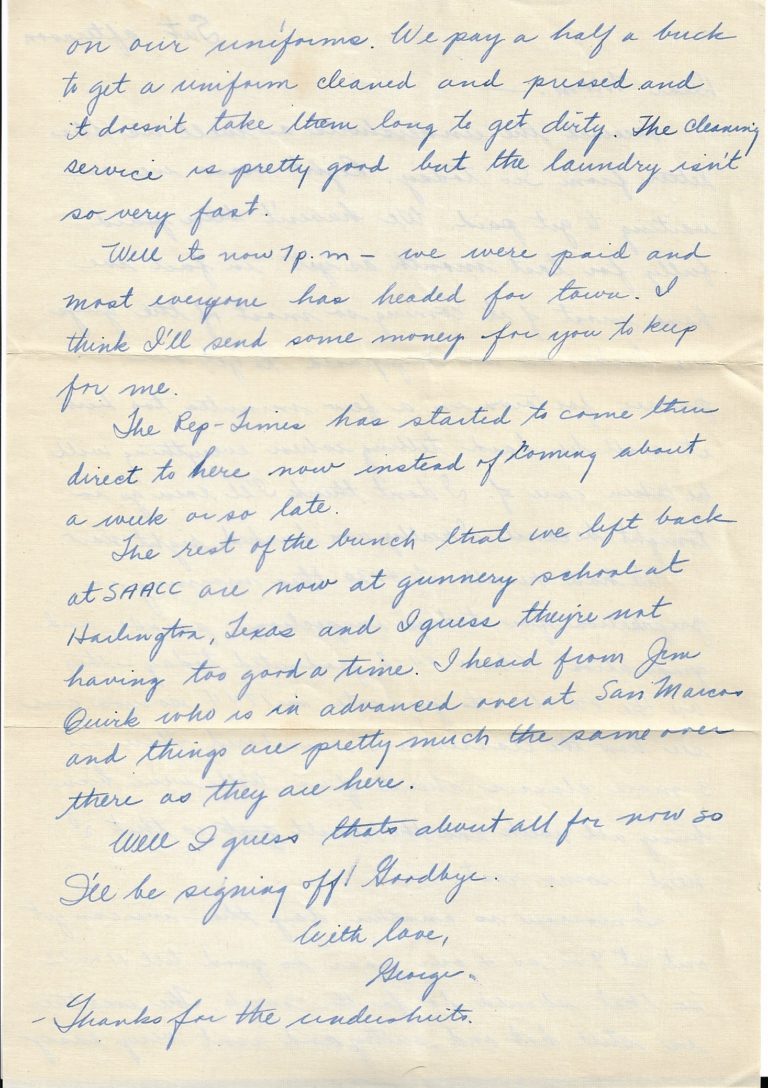 on our uniforms. We pay a half a buck
to get a uniform cleaned and pressed and
it doesn't take them long to get dirty. The cleaning
service is pretty good but the laundry isn't
so very fast.
Well its now 7 p.m – we were paid and
most everyone has headed for town. I
think I'll send some money for you to keep
for me.
The Rep-Times has started to come thru
direct to here now instead of coming about
a week or so late.
The rest of the bunch that we left back
at SAACC are now at gunnery school at
Harlington, Texas and I guess they're not
having too good a time. I heard from Jim
Quirk who is in advanced over at San Marcos
and things are pretty much the same over
there as they are here.
Well I guess thats about all for now so
I'll be signing off! Goodbye.
With love,
George.
- Thanks for the undershirts.